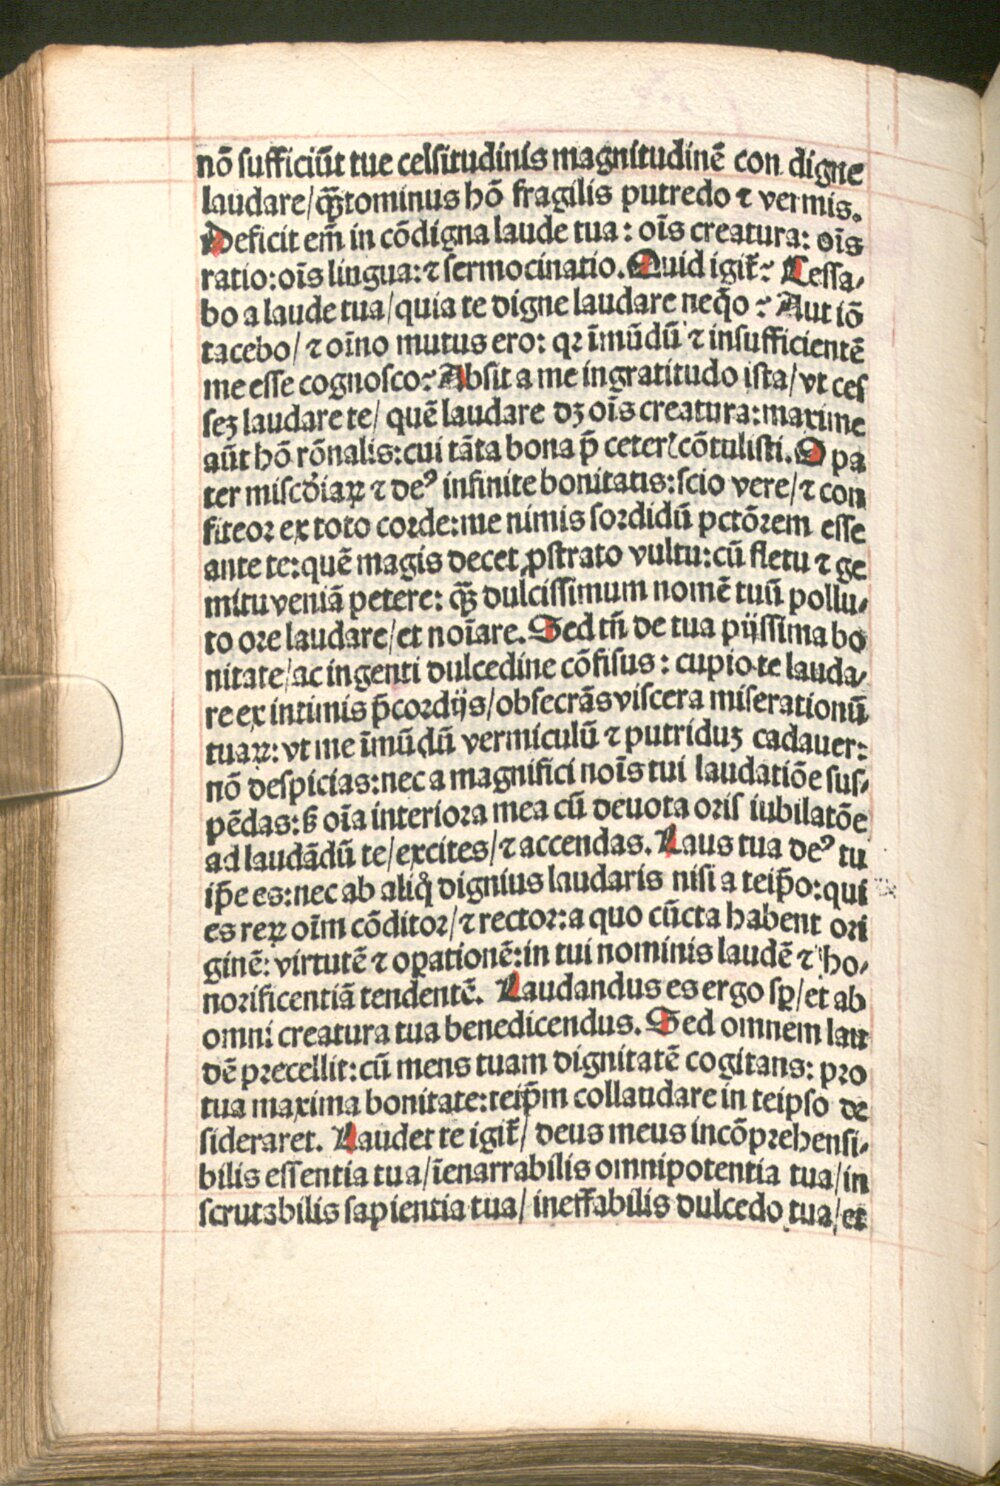 nō sufficiūt tue celsitudinis magnitudinē con digne
laudare/q̄ȝtominus hō fragilis putredo ⁊ vermis.
Deficit em̄ in cōdigna laude tua: oīs creatura: oīs
ratio: oīs lingua: ⁊ sermocinatio. Quid igit̄? Cessa-
bo a laude tua/quia te digne laudare neq̄o? Aut iō
tacebo/⁊ oīno mutus ero: qꝛ īmūdū ⁊ insufficientē
me esse cognosco? Absit a me ingratitudo ista/vt ces
seʒ laudare te/ quē laudare dʒ oīs creatura: maxime
aūt hō rōnalis: cui tāta bona p̄ ceterꝭ cōtulisti. O pa
ter misc̄diaꝝ ⁊ deꝰ infinite bonitatis: scio vere/⁊ con
fiteor ex toto corde: me nimis sordidū pctōrem esse
ante te: quē magis decet ꝓstrato vultu: cū fletu ⁊ ge
mitu veniā petere: q̄ȝ dulcissimum nomē tuū pollu-
to ore laudare/et noīare. Sed tn̄ de tua pijssima bo
nitate/ac ingenti dulcedine cōfisus: cupio te lauda-
re ex intimis p̄cordijs/obsecrās viscera miserationū
tuaꝝ: vt me īmūdū vermiculū ⁊ putriduʒ cadauer:
nō despicias: nec a magnifici noīs tui laudatiōe sus-
pēdas: ꞩ oīa interiora mea cū deuota oris iubilatōe
ad laudādū te/excites/⁊ accendas. Laus tua deꝰ tu
ip̄e es: nec ab aliq̊ dignius laudaris nisi a teip̄o: qui
es reꝝ oīm cōditor/⁊ rector: a quo cūcta habent ori
ginē: virtutē ⁊ oꝑationē: in tui nominis laudē ⁊ ho-
norificentiā tendentē. Laudandus es ergo sꝑ/et ab
omni creatura tua benedicendus. Sed omnem lau
dē precellit: cū mens tuam dignitatē cogitans: pro
tua maxima bonitate: teip̄m collaudare in teipso de
sideraret. Laudet te igit̄/ deus meus incōprehensi-
bilis essentia tua/īenarrabilis omnipotentia tua/in
scrutabilis sapientia tua/ ineffabilis dulcedo tua/et